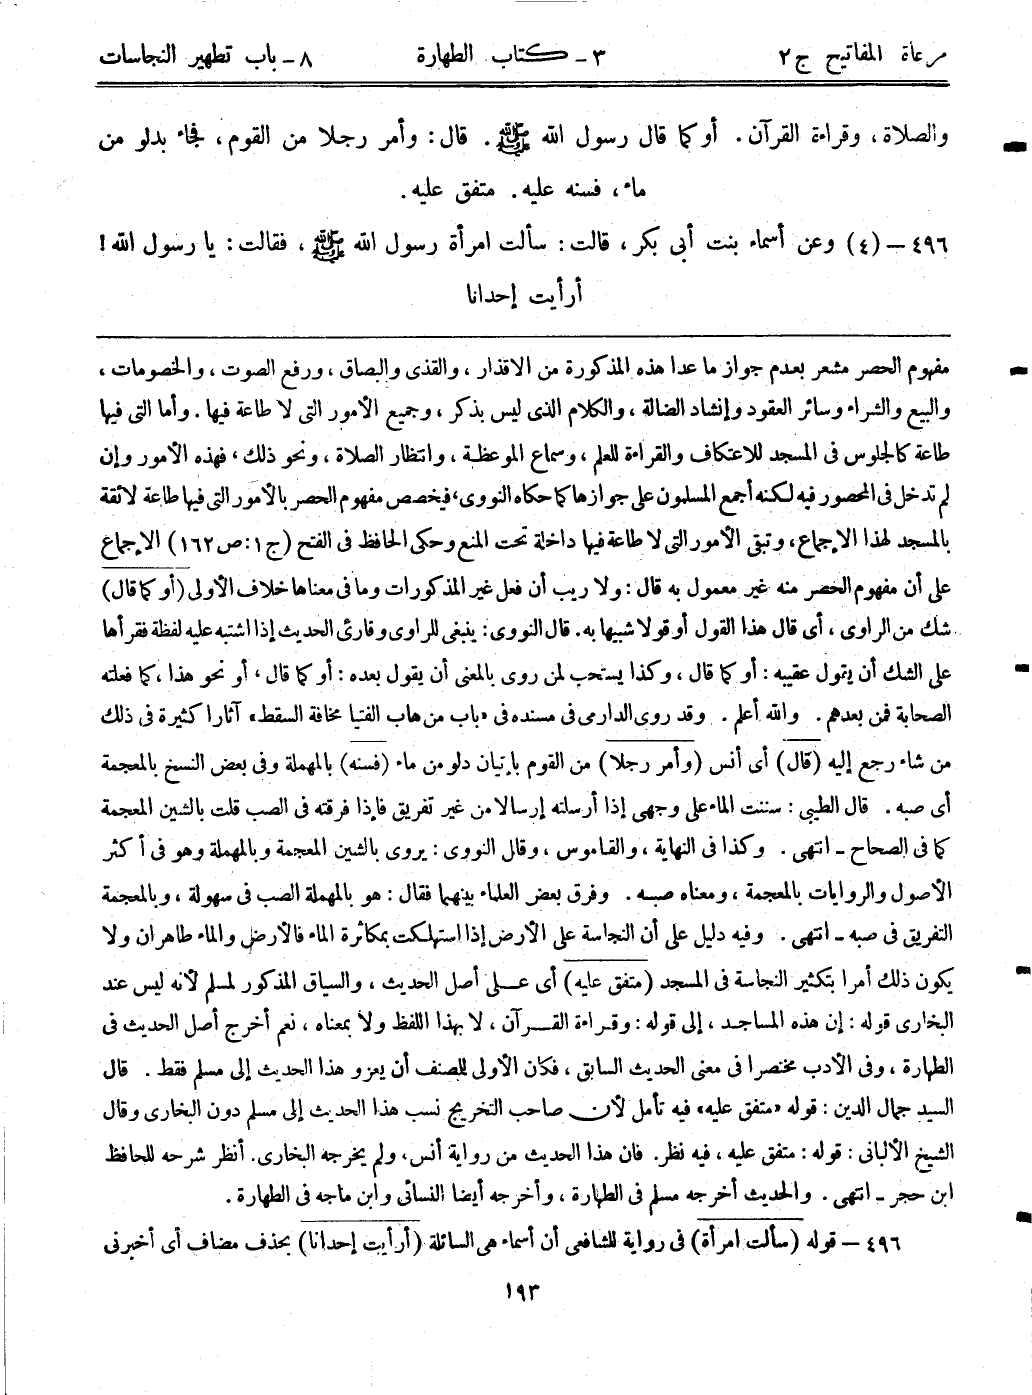 مرعاة المفاتيح ج٢ ٣ ـ كتاب الطهارة ٨ ـ باب تطهير النجاسات
والصلاة ، وقراءة القرآن . أو كما قال رسول الله ﷺ . قال : وأمر رجلا من القوم ، فجاء بدلو من
ماء ، فسنه عليه . متفق عليه .
٤٩٦ – (٤) وعن أسماء بنت أبى بكر ، قالت : سألت امرأة رسول الله ﷺ ، فقالت : يا رسول الله !
أرأيت إحدانا
مفهوم الحصر مشعر بعدم جواز ما عدا هذه المذكورة من الاقذار ، والقذى والبصاق ، ورفع الصوت ، والخصومات ،
والبيع والشراء وسائر العقود وإنشاد الضالة ، والكلام الذى ليس بذكر ، وجميع الأمور التى لا طاعة فيها . وأما التى فيها
طاعة كالجلوس فى المسجد للاعتكاف والقراءة للعلم ، وسماع الموعظة ، وانتظار الصلاة ، ونحو ذلك ، فهذه الأمور وإن
لم تدخل فى المحصور فيه لكنه أجمع المسلمون على جوازها كما حكاه النووى ، فيخصص مفهوم الحصر بالأمور التى فيها طاعة لائقة
بالمسجد لهذا الإجماع ، وتبقى الأمور التى لا طاعة فيها داخلة تحت المنع وحكى الحافظ فى الفتح (ج١ : ص١٦٢) الإجماع
على أن مفهوم الحصر منه غير معمول به قال : ولا ريب أن فعل غير المذكورات وما فى معناها خلاف الأولى (أو كما قال)
شك من الراوى ، أى قال هذا القول أو قولا شبيها به . قال النووى : ينبغى للراوى وقارئ الحديث إذا اشتبه عليه لفظة فقرأها
على الشك أن يقول عقيبه : أو كما قال ، وكذا يستحب لمن روى بالمعنى أن يقول بعده : أو كما قال ، أو نحو هذا ، كما فعلته
الصحابة فمن بعدهم . والله أعلم . وقد روى الدارمى فى مسنده فى «باب من هاب الفتيا مخافة السقط» آثارا كثيرة فى ذلك
من شاء رجع إليه (قال) أى أنس (وأمر رجلا) من القوم بإتيان دلو من ماء (فسنه) بالمهملة وفى بعض النسخ بالمعجمة
أى صبه . قال الطيبى : سننت الماء على وجهى إذا أرسلته إرسالا من غير تفريق فإذا فرقته فى الصب قلت بالشين المعجمة
كما فى الصحاح ـ انتهى . وكذا فى النهاية ، والقاموس ، وقال النووى : يروى بالشين المعجمة وبالمهملة وهو فى أكثر
الأصول والروايات بالمعجمة ، ومعناه صبه . وفرق بعض العلماء بينهما فقال : هو بالمهملة الصب فى سهولة ، وبالمعجمة
التفريق فى صبه ـ انتهى . وفيه دليل على أن النجاسة على الأرض إذا استهلكت بمكاثرة الماء فالأرض والماء طاهران ولا
يكون ذلك أمرا بتكثير النجاسة فى المسجد (متفق عليه) أى على أصل الحديث ، والسياق المذكور لمسلم لأنه ليس عند
البخارى قوله : إن هذه المساجد ، إلى قوله : وقراءة القرآن ، لا بهذا اللفظ ولا بمعناه ، نعم أخرج أصل الحديث فى
الطهارة ، وفى الأدب مختصرا فى معنى الحديث السابق ، فكان الأولى للصنف أن يعزو هذا الحديث إلى مسلم فقط . قال
السيد جمال الدين : قوله «متفق عليه» فيه تأمل لأن صاحب التخريج نسب هذا الحديث إلى مسلم دون البخارى وقال
الشيخ الألبانى : قوله : متفق عليه ، فيه نظر . فان هذا الحديث من رواية أنس ، ولم يخرجه البخارى . أنظر شرحه للحافظ
ابن حجر ـ انتهى . والحديث أخرجه مسلم فى الطهارة ، وأخرجه أيضا النسائى وابن ماجه فى الطهارة .
٤٩٦ – قوله (سألت امرأة) فى رواية للشافعى أن أسماء هى السائلة (أرأيت إحدانا) بحذف مضاف أى أخبرنى
١٩٣